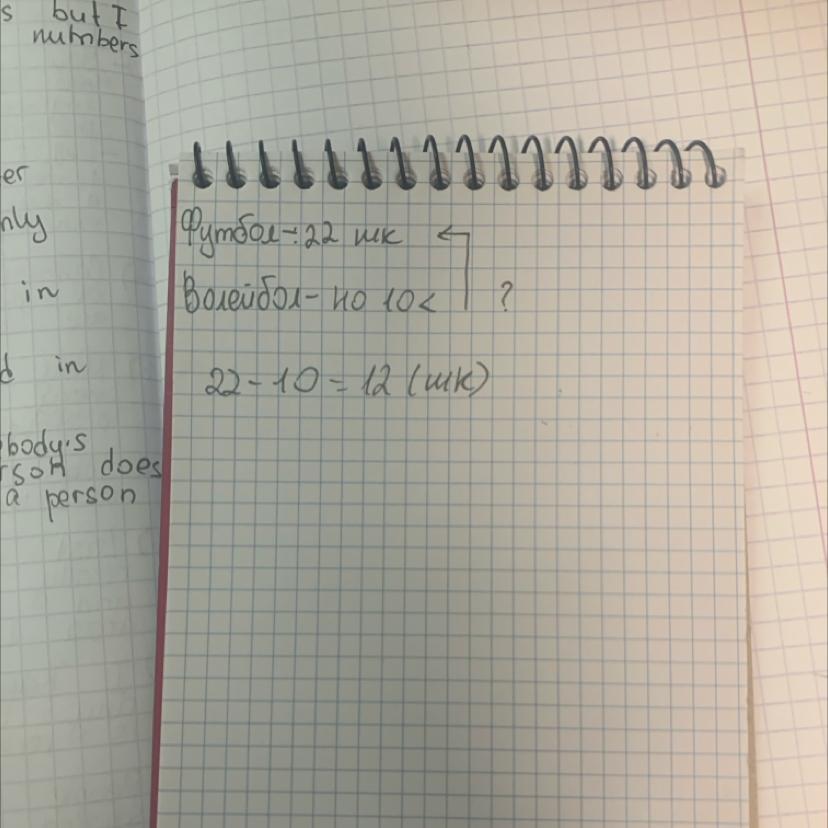 s but I
numbers
er
nly
in
d in
body's
rson does
a person
Футбол-:22 шк
Волейбол- но 10<
?
22-10=12 (шк)